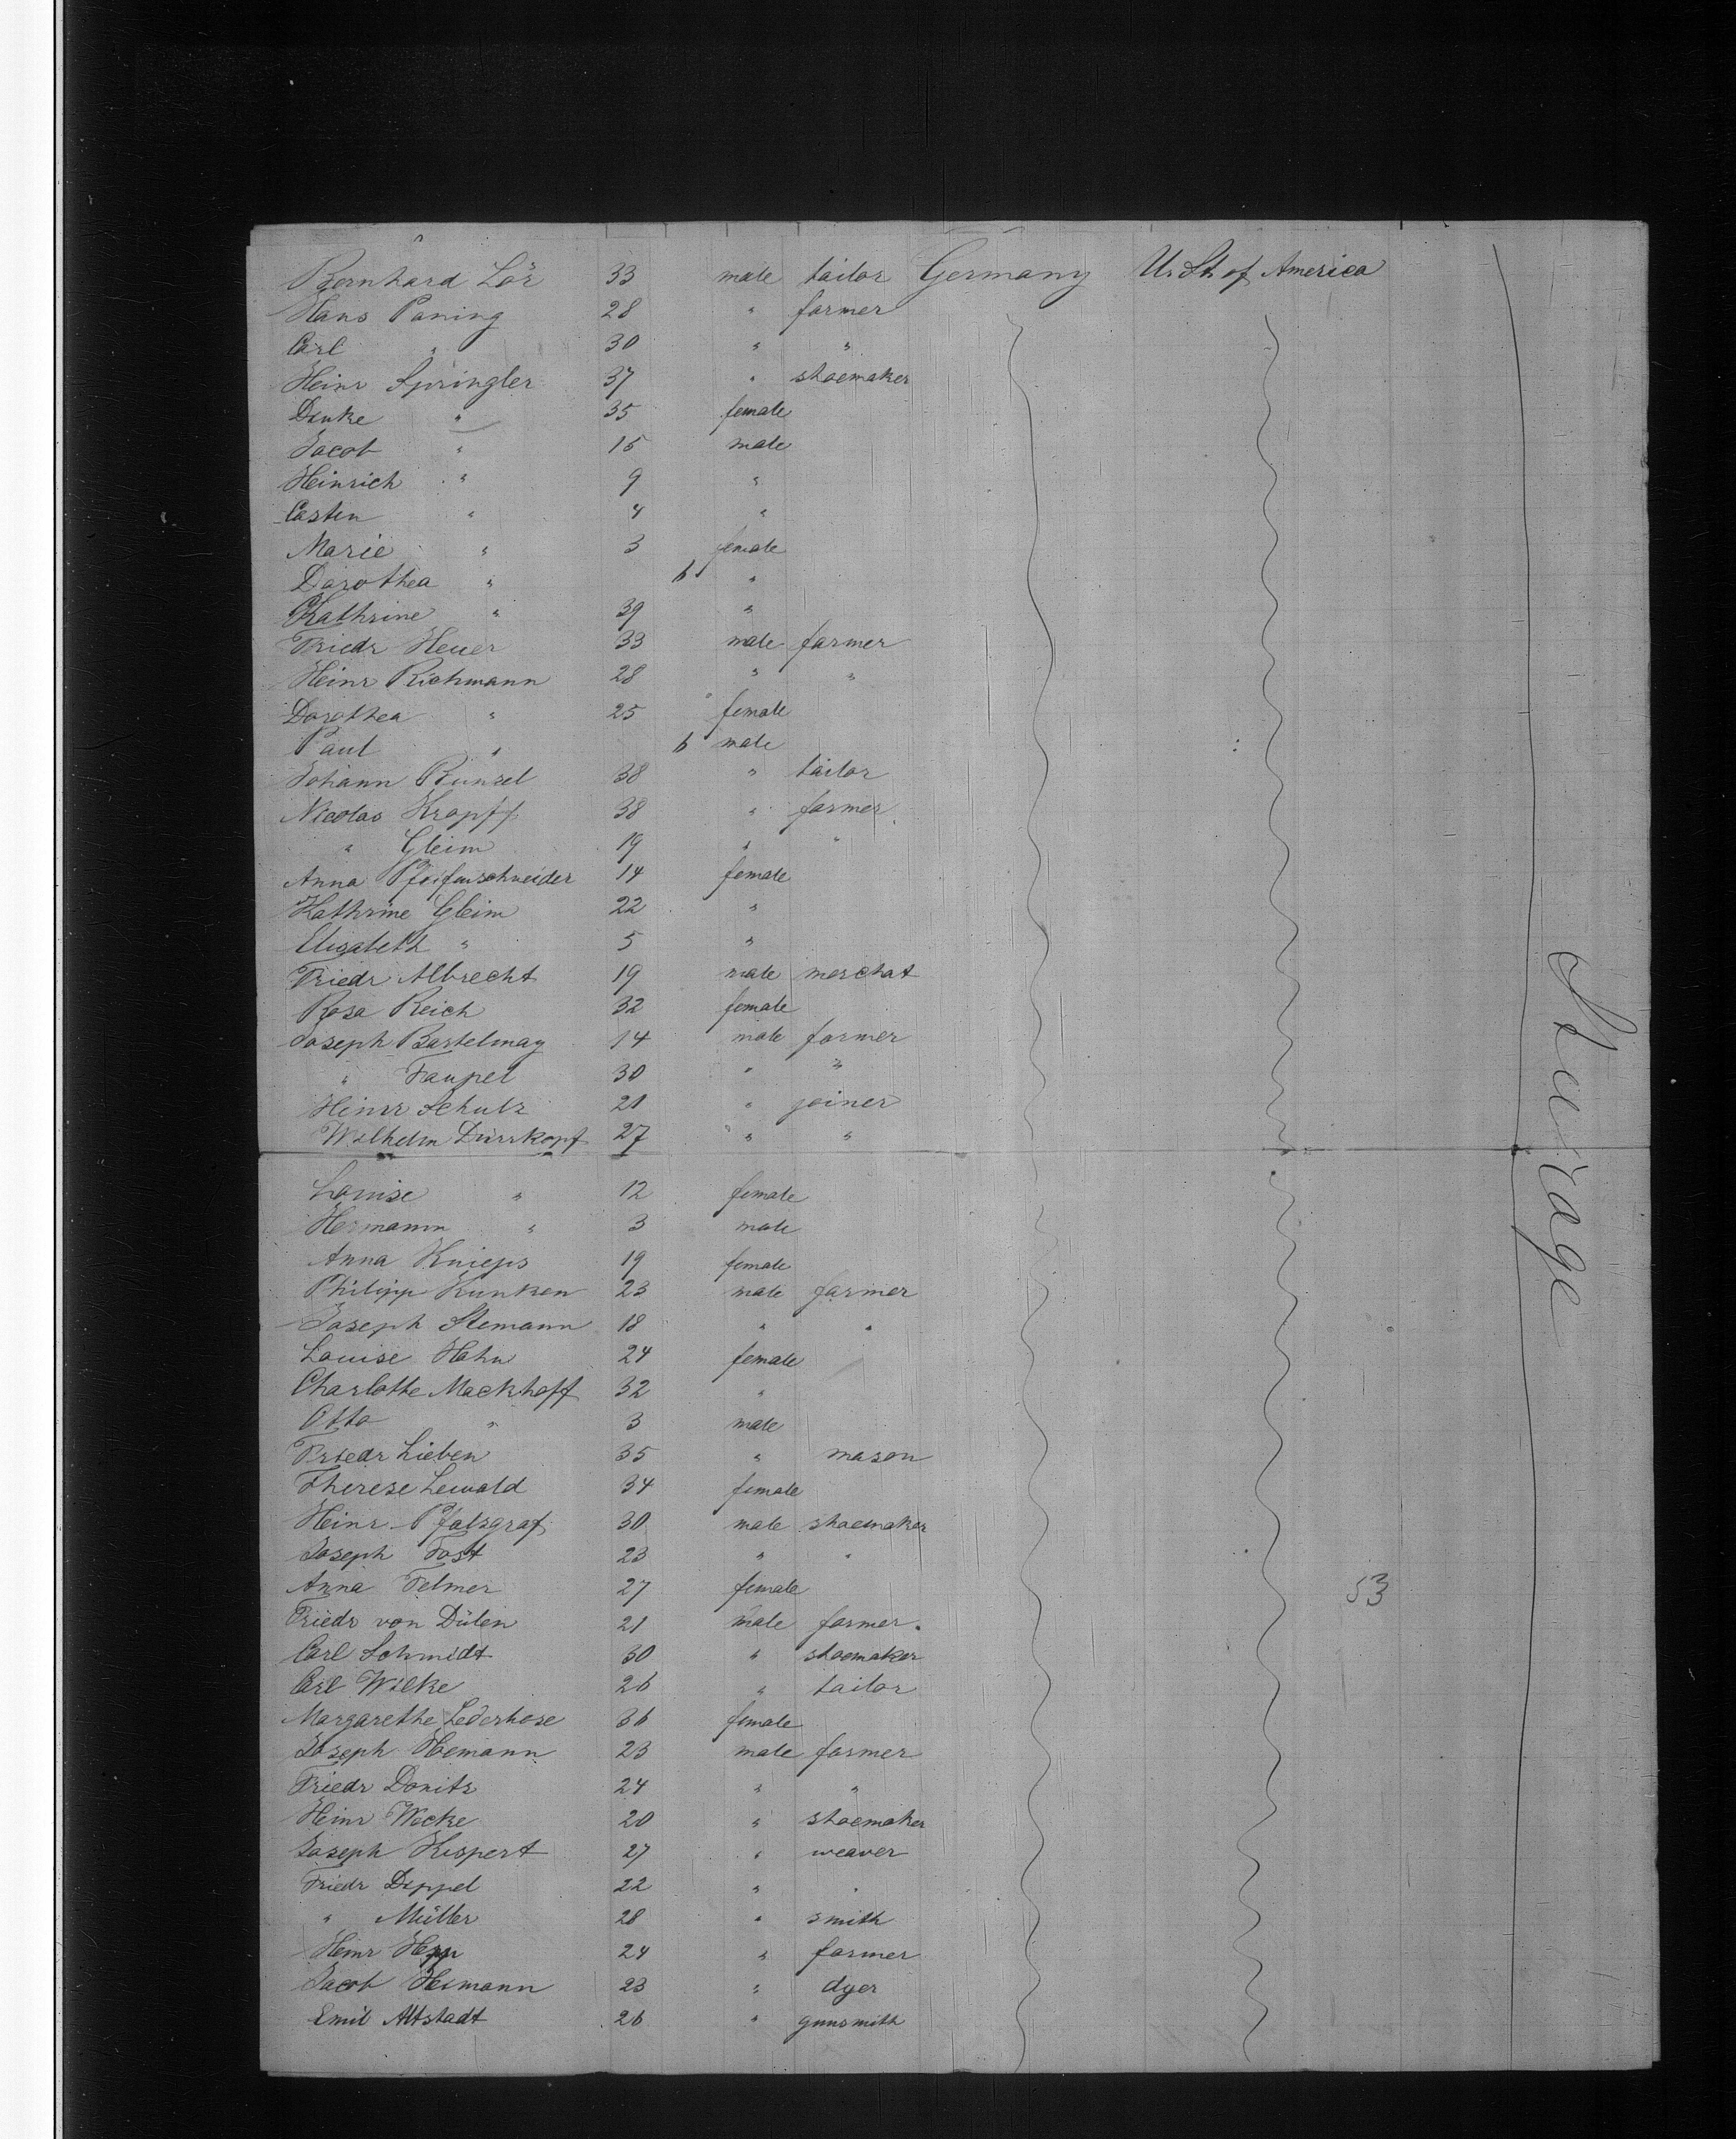 Bernhard Lör 33 male tailor Germany U. St. of America
Hans Paning 28 " farmer
Carl " 30 " "
Heinr Springler 37 " shoemaker
Dinke " 35 female
Jacob " 15 male
Heinrich " 9 "
Casten " 4 "
Marie " 3 female
Dorothea " 6 "
Kathrine " 39 "
Friedr Heuer 33 male farmer
Heinr Richmann 28 " "
Dorothea " 25 female
Paul " 6 male
Johann Runzel 38 " tailor
Nicolas Kropff 38 " farmer
" Gleim 19 " "
Anna Pfeifenschneider 14 female
Kathrine Gleim 22 "
Elisabeth " 5 "
Friedr Albrecht 19 male merchat
Rosa Reich 32 female
Joseph Bartelmay 14 male farmer
" Faupel 30 " "
Heinr Schulz 21 " joiner
Wilhelm Dürrkopf 27 " "
Louise " 12 female
Hermann " 3 male
Anna Knieps 19 female
Philipp Kunken 23 male farmer
Joseph Stemann 18 " "
Louise Hahn 24 female
Charlotte Mackhoff 32 "
Otto " 3 male
Friedr Lieben 35 " mason
Therese Lewald 34 female
Heinr Pfalsgraf 30 male shoemaker
Joseph Fost 23 " "
Anna Felmer 27 female
Friedr von Dülen 21 male farmer.
Carl Schmidt 30 " shoemaker
Carl Wilke 26 " tailor
Margarethe Lederhose 36 female
Joseph Hemann 23 male farmer
Friedr Donitz 24 " "
Heinr Wecke 20 " shoemaker
Joseph Kispert 27 " weaver
Friedr Dippel 22 " "
" Müller 28 " smith
Heinr Hepp 24 " farmer
Jacob Heimann 23 " dyer
Emil Altstadt 26 " gunsmith
Steerage
53